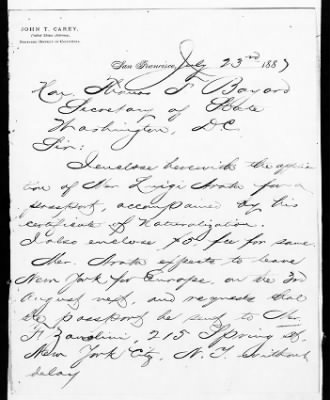 JOHN T. CAREY,
United States Attorney,
Northern District of California
San Francisco, July 23rd 1887
Hon. Thomas F Bayard
Secretary of State
Washington, D.C.
Sir:
I enclose herewith the applica
tion of Mr Luigi for a
passport, accompanied by his
certificate of Naturalization.
I also enclose $5 fee for same.
Mr. expects to leave
New York for Europe, on the 3rd
August next, and requests that
the passport be sent to Mr.
215 Spring st,
New York City, N.Y. without
delay